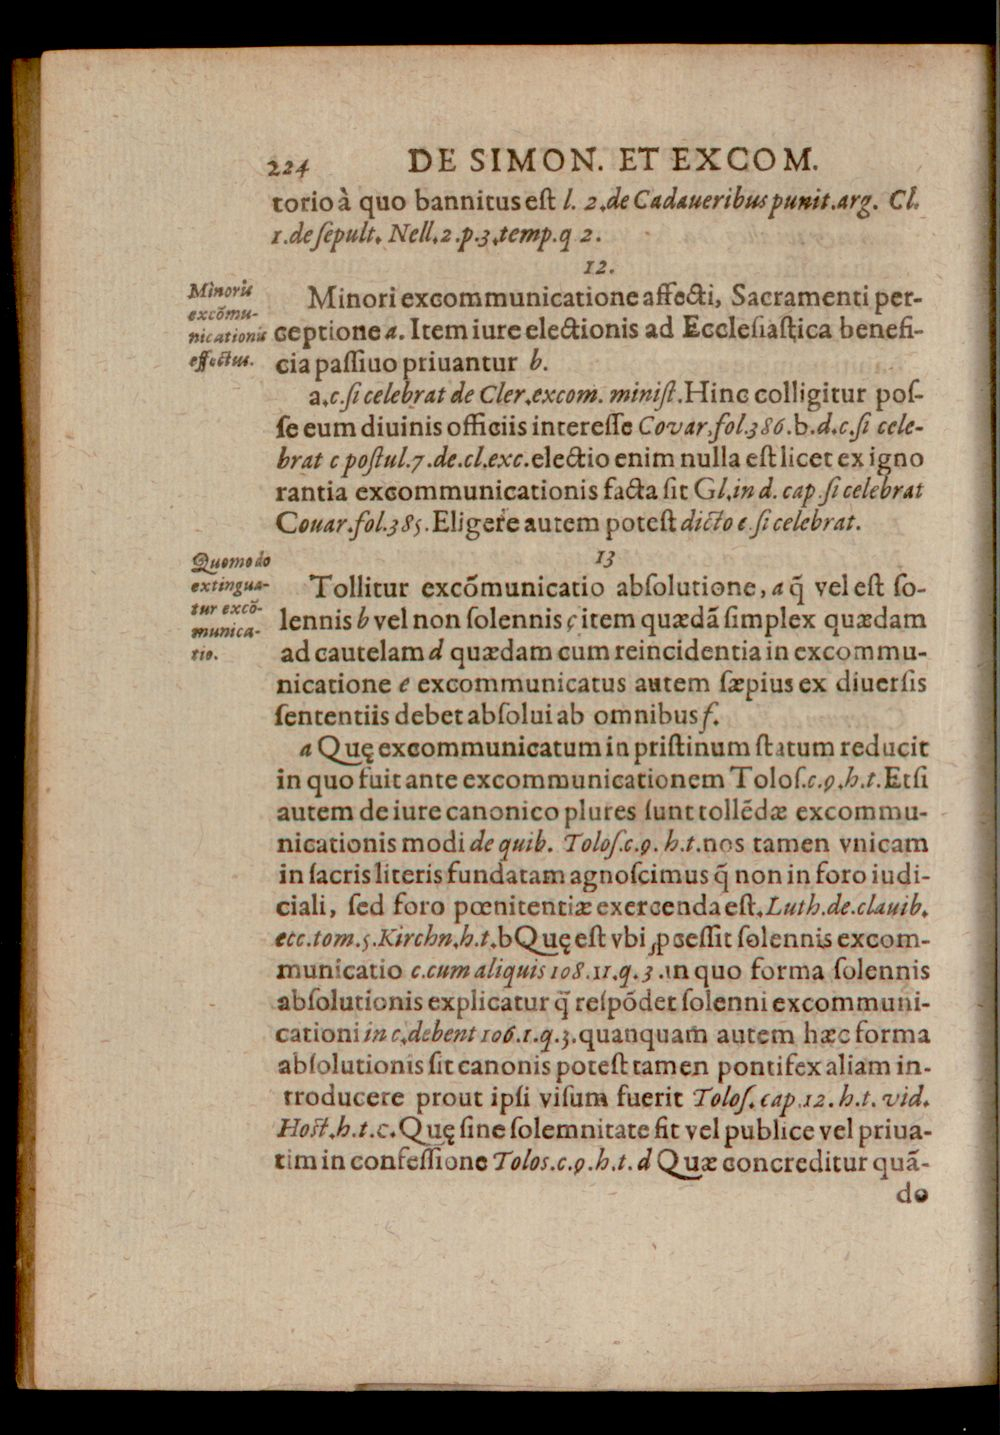 224 DE SIMON. ET EXCOM.
torio à quo bannitus eſt l. 2.de Cadaueribus punit.arg. Cl.
1.de ſepult. Nell.2.p.3.temp.q 2.
12.
Minoris
excõmu-
nicationis
effectus.
Minori excommunicatione affecti, Sacramenti per-
ceptione a. Item iure electionis ad Eccleſiaſtica benefi-
cia paſſiuo priuantur b.
a.c.ſi celebrat de Cler.excom. miniſt.Hinc colligitur poſ-
ſe eum diuinis officiis intereſſe Covar.fol.386.b.d.c.ſi cele-
brat c poſtul.7.de.cl.exc.electio enim nulla eſt licet ex igno
rantia excommunicationis facta ſit Gl.in d. cap.ſi celebrat
Couar.fol.385.Eligere autem poteſt dicto c.ſi celebrat.
13
Quomodo
extingua-
tur excõ-
munica-
tio.
Tollitur excõmunicatio abſolutione, a q̃ vel eſt ſo-
lennis b vel non ſolennis c item quædã ſimplex quædam
ad cautelam d quædam cum reincidentia in excommu-
nicatione e excommunicatus autem ſæpius ex diuerſis
ſententiis debet abſolui ab omnibus f.
a Quę excommunicatum in priſtinum ſtatum reducit
in quo fuit ante excommunicationem Toloſ.c.9.h.t.Etſi
autem de iure canonico plures ſunt tollẽdæ excommu-
nicationis modi de quib. Toloſ.c.9. h.t.nos tamen vnicam
in ſacris literis fundatam agnoſcimus q̃ non in foro iudi-
ciali, ſed foro pœnitentiæ exercenda eſt.Luth.de.clauib.
ecc.tom.5.Kirchn.h.t.bQuę eſt vbi ꝓceſſit ſolennis excom-
municatio c.cum aliquis 108.11.q.3.in quo forma ſolennis
abſolutionis explicatur q̃ reſpõdet ſolenni excommuni-
cationi in c.debent 106.1.q.3.quanquam autem hæc forma
abſolutionis ſit canonis poteſt tamen pontifex aliam in-
troducere prout ipſi viſum fuerit Toloſ.cap.12.h.t.vid.
Hoſt.h.t.c.Quę ſine ſolemnitate fit vel publice vel priua-
tim in confeſſione Tolos.c.9.h.t.d Quæ concreditur quã-
do